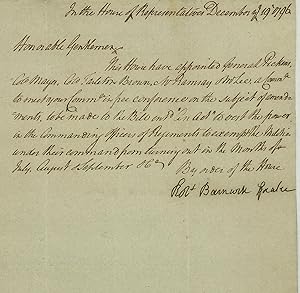 In the House of Representatives December 19th 1796
Honorable Gentlemen
This House have appointed General Pickens,
Col. Mayor, Col. Tarleton Brown, Mr Ramsay, Mr Lee, a Committee
to meet your Committee in free conference on the subject of amend
ments, to be made to the Bill entd. "an Act to vest the power
in the Commanding officers of Regiments to exempt the Militia
under their command from turning out in the Months of
July, August & September
By order of the House
Robt Barnwell Speaker